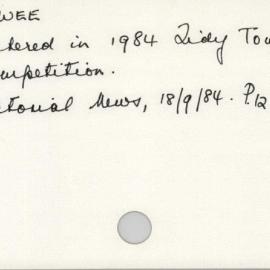 WEE
tered in 1984 Tidy Tow
ompetition.
torial News, 18/9/84. P.12